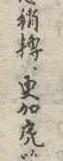 稍搏更加虎